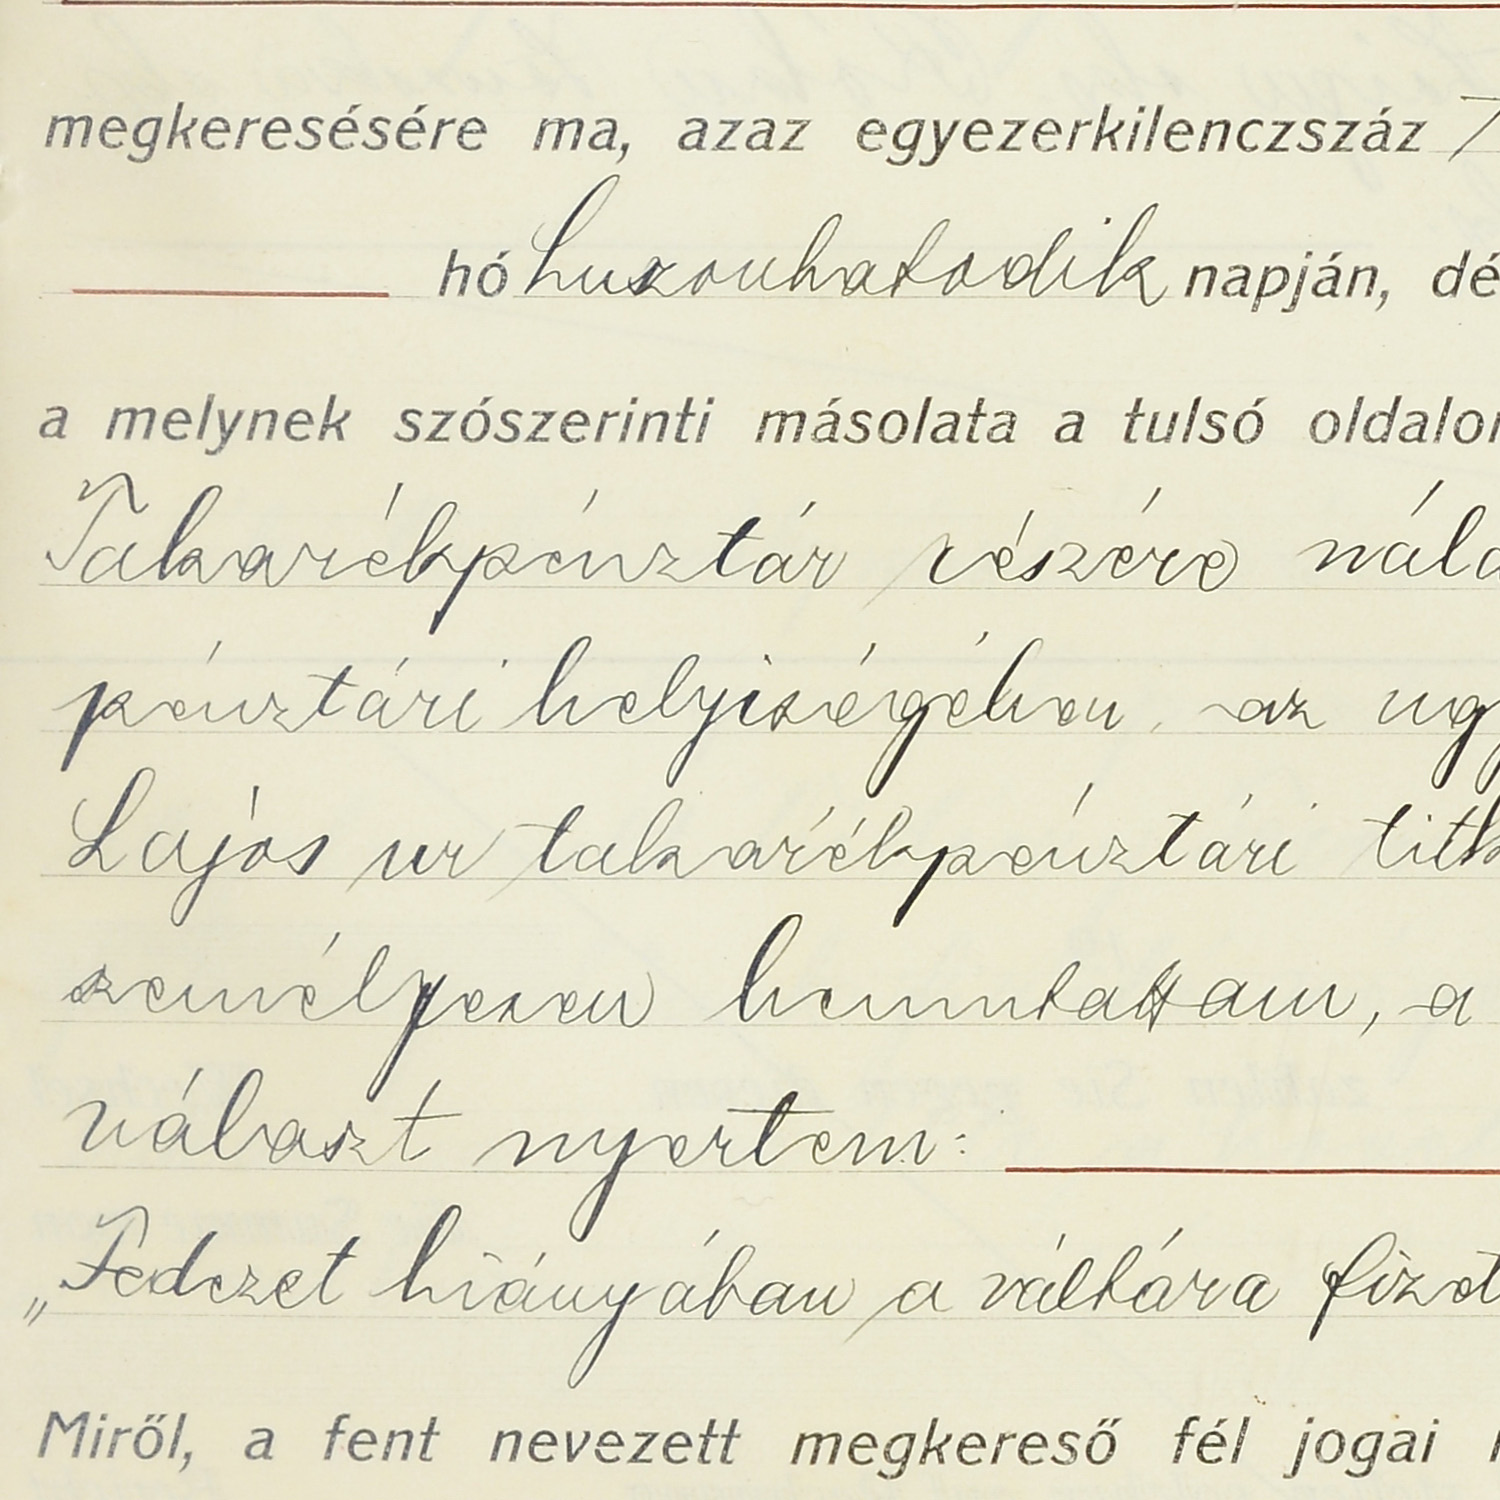 megkeresésére ma, azaz egyezerkilenczszáz
hó huszonhatodik napján, dé
a melynek szószerinti másolata a tulsó oldalon
Takarékpénztár részére nála
pénztári helyiségében az ugy
Lajos ur takarékpénztári titk
személyesen bemutattam, a
választ nyertem:
„Fedezet hiányában a váltóra fizet
Miről, a fent nevezett megkereső fél jogai